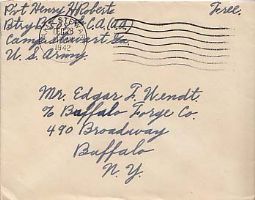 Pvt Henry H Roberts
Free.
Btry C.A. (AA)
Camp Stewart, Ga.
U.S. Army.
1942
Mr. Edgar F. Wendt.
% Buffalo Forge Co.
490 Broadway
Buffalo
N.Y.